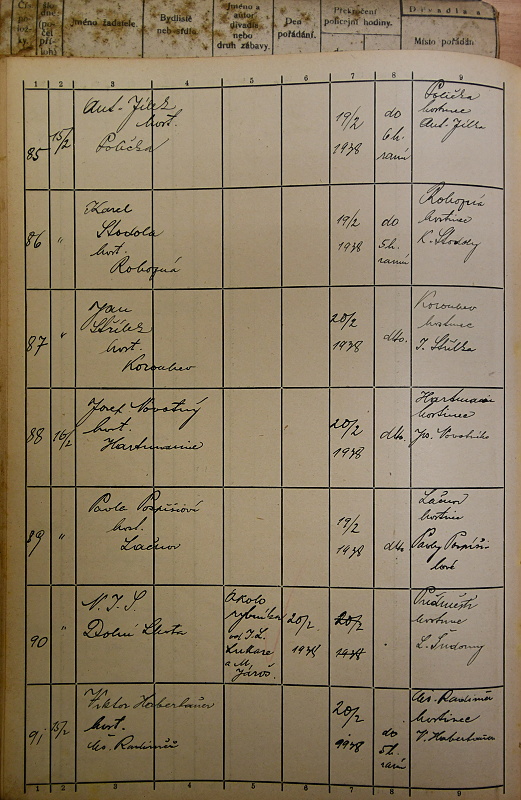 Jméno žadatele.
Bydliště
neb sídlo
Jméno a
autor
divadla
nebo
druh zábavy.
Den
pořádání.
Překročení
policejní hodiny.
Divadla a
Místo pořádání
1 2 3 4 5 6 7 8 9
85
15/2
Ant. Jílek
host.
Polička
19/2
1938
do
6h.
ranní
Polička
hostinec
Ant. Jílka
86
"
Karel
Stodola
host.
Rohozná
19/2
1938
do
5h.
ranní
Rohozná
hostinec
K. Stodoly
87
"
Jan
Střílek
host.
Korouhev
20/2
1938
dto.
Korouhev
hostinec
J. Střílka
88
16/2
Josef Novotný
host.
Hartmanice
20/2
1938
dto.
Hartmanice
hostinec
Jos. Novotného
89
"
Pavla Pospíšilová
host.
Lačnov
19/2
1938
dto.
Lačnov
hostinec
Pavly Pospíši-
lové
90
"
N. J. S.
Dolní Lhota
Okolo
rybníka
od J. L.
Lukare
a M.
Jároš.
20/2
1938
20/2
1938
Předměstí
hostinec
91
15/2
Viktor Haberhauer
host.
Čes. Radiměř
20/2
1938
do
5h.
ranní
Čes. Radiměř
hostinec
V. Haberhauera
1 2 3 4 5 6 7 8 9